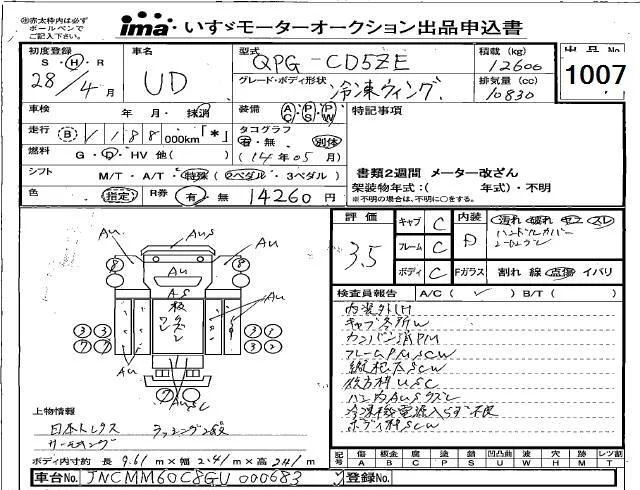 ㊟赤太枠内は必ず
ボールペンで
ご記入下さい。
ima いすゞモーターオークション出品申込書
初度登録 車名 型式 積載 (kg) 出品No
S・H・R UD QPG-CD5ZE 12600 1007
28年/4月 グレード・ボディ形状 冷凍ウィング 排気量 (cc) 10830
車検 年 月・抹消 装備 AC PS PW 特記事項
走行 (B) 1188 000km「*」 タコグラフ 有・無 別体
燃料 G・D・HV 他( ) (14年05月) 書類2週間 メーター改ざん
シフト M/T・A/T・特殊(2ペダル・3ペダル) 架装物年式:( 年式)・不明
色 指定 R券 有・無 14260円 ※不明の場合は、不明に○をする。
評価 3.5
キャブ C 内装 D 汚れ 破れ コゲ スレ
ハンドルカバー
フレーム C
ボディ C Fガラス 割れ 線 点傷 イバリ
検査員報告 A/C( ✓ ) B/T( )
内装外H
キャブ各所W
カンバン消PM
フレームPMSCW
縁根太SCW
後方枠USC
冷凍機電源入らず不良
ボディ枠SCW
Au AuS Au
8 Au 8
AS
Au
Au Au
7 7
AuSC
上物情報
日本トレクス ラッシング2段
ボディ内寸約 長 9.61 m×幅 2.41 m×高 2.41 m
記号 傷 A 板金 B 腐 C 塗 P サビ S 凹凸曲 U 波 W 穴 H 跡 M レツ割 T
車台No. JNCMM60C8GU 000683 登録No.